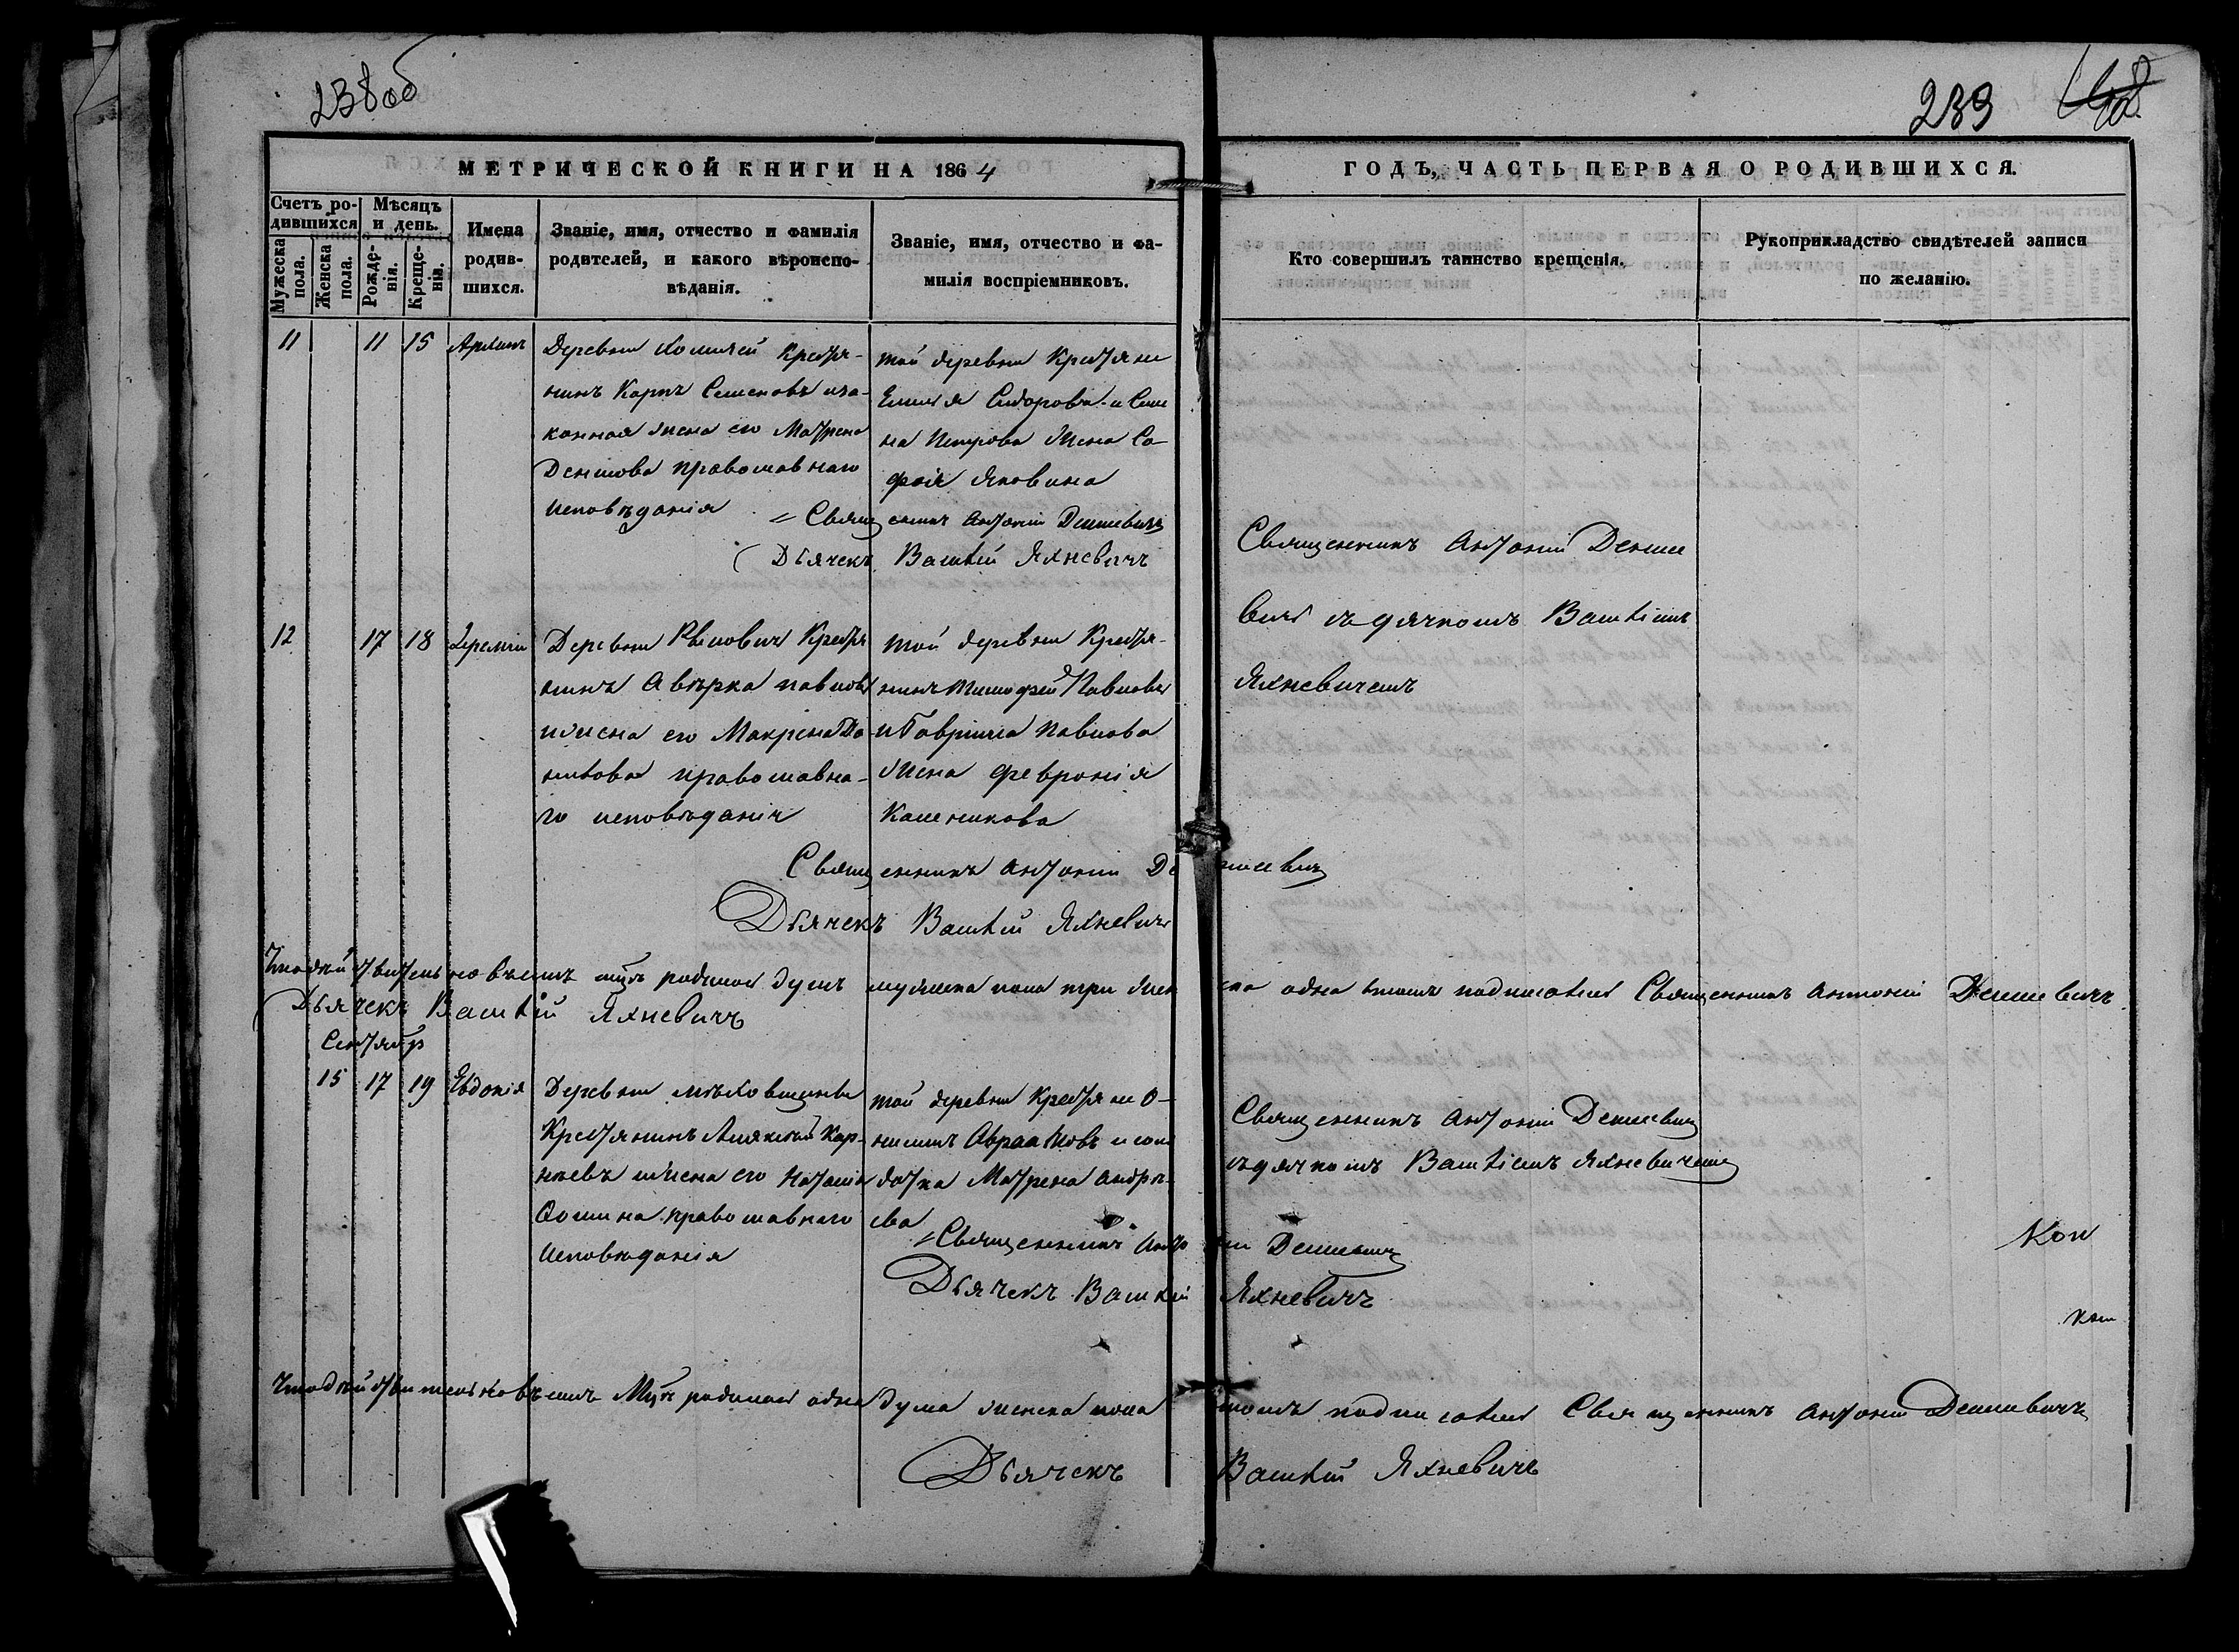 238 об
239
МЕТРИЧЕСКОЙ КНИГИ НА 1864
ГОДЪ, ЧАСТЬ ПЕРВАЯ О РОДИВШИХСЯ.
Счетъ ро-
дившихся
Мужеска
пола.
Женска
пола.
Мѣсяцъ
и день.
Рожде-
нія.
Креще-
нія.
Имена
родив-
шихся.
Званіе, имя, отчество и фамилія
родителей, и какого вѣроиспо-
вѣданія.
Званіе, имя, отчество и фа-
милія воспріемниковъ.
Кто совершилъ таинство крещенія.
Рукоприкладство свидѣтелей записи
по желанію.
11 11 15
Деревни Крестья-
нинъ Карпъ Семеновъ иза-
конная жена его Матрена
Денисова православнаго
исповѣданія
той деревни Крестьяне
Сидорова и Семе
на Петрова жена Со-
фія Яковина
Священникъ Антоній
Дьячекъ Василій Яхневичъ
Священникъ Антоній
съ дячкомъ Василіемъ
Яхневичемъ
12 17 18 Іеремій
Деревни Крестья
нинъ Авѣрка павловъ
ижена его Макрена Да-
православна-
го исповѣданія
той деревни Крестья-
нинъ Тимофей Павловъ
и Гавріила Павлова
жена Февронія
Священникъ Антоній
Дьячекъ Василій Яхневичъ
родилось душъ мужеска пола три женска одна втомъ подписались Священникъ Антоній
Дьячекъ Василій Яхневичъ
Сентябр
15 17 19 Евдокія
Деревни
Крестьянинъ Кор-
нѣевъ ижена его Наталія
Фомина православнаго
исповѣданія
той деревни Крестьяне О-
нисимъ Авраамовъ и сол
датка Матрена Андрѣ-
ева
Священникъ Антоній
съ дячкомъ Василіемъ Яхневичемъ
Священникъ Антоній
Дьячекъ Василій Яхневичъ
Кон
родилась одна душа женска пола втомъ подписались Священникъ Антоній
Дьячекъ Василій Яхневичъ